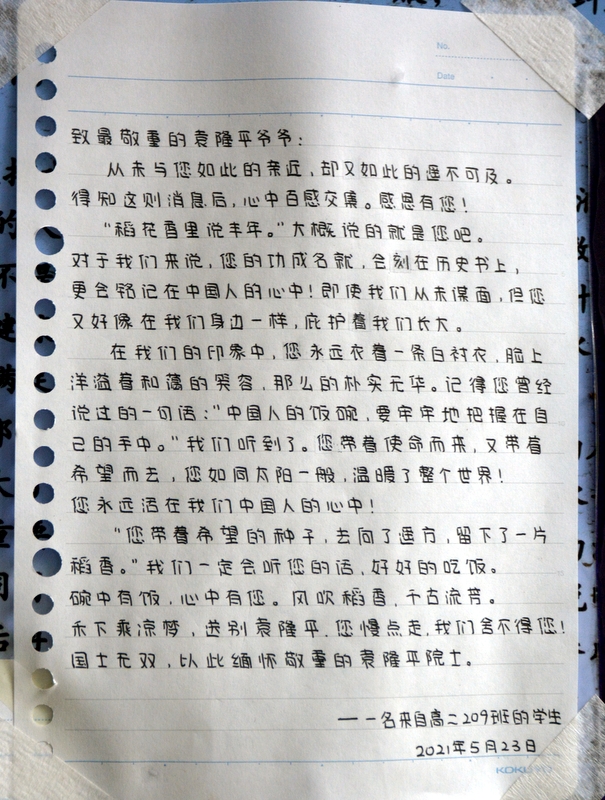 No.
Date
致最敬重的袁隆平爷爷：
从未与您如此的亲近，却又如此的遥不可及。
得知这则消息后，心中百感交集。感恩有您！
“稻花香里说丰年。”大概说的就是您吧。
对于我们来说，您的功成名就，会刻在历史书上，
更会铭记在中国人的心中！即使我们从未谋面，但您
又好像在我们身边一样，庇护着我们长大。
在我们的印象中，您永远衣着一条白衬衣，脸上
洋溢着和蔼的笑容，那么的朴实无华。记得您曾经
说过的一句话：“中国人的饭碗，要牢牢地把握在自
己的手中。”我们听到了。您带着使命而来，又带着
希望而去，您如同太阳一般，温暖了整个世界！
您永远活在我们中国人的心中！
“您带着希望的种子，去向了远方，留下了一片
稻香。”我们一定会听您的话，好好的吃饭。
碗中有饭，心中有您。风吹稻香，千古流芳。
禾下乘凉梦，送别袁隆平.您慢点走，我们舍不得您！
国士无双，以此缅怀敬重的袁隆平院士。
——一名来自高二209班的学生
2021年5月23日
KOKUYO